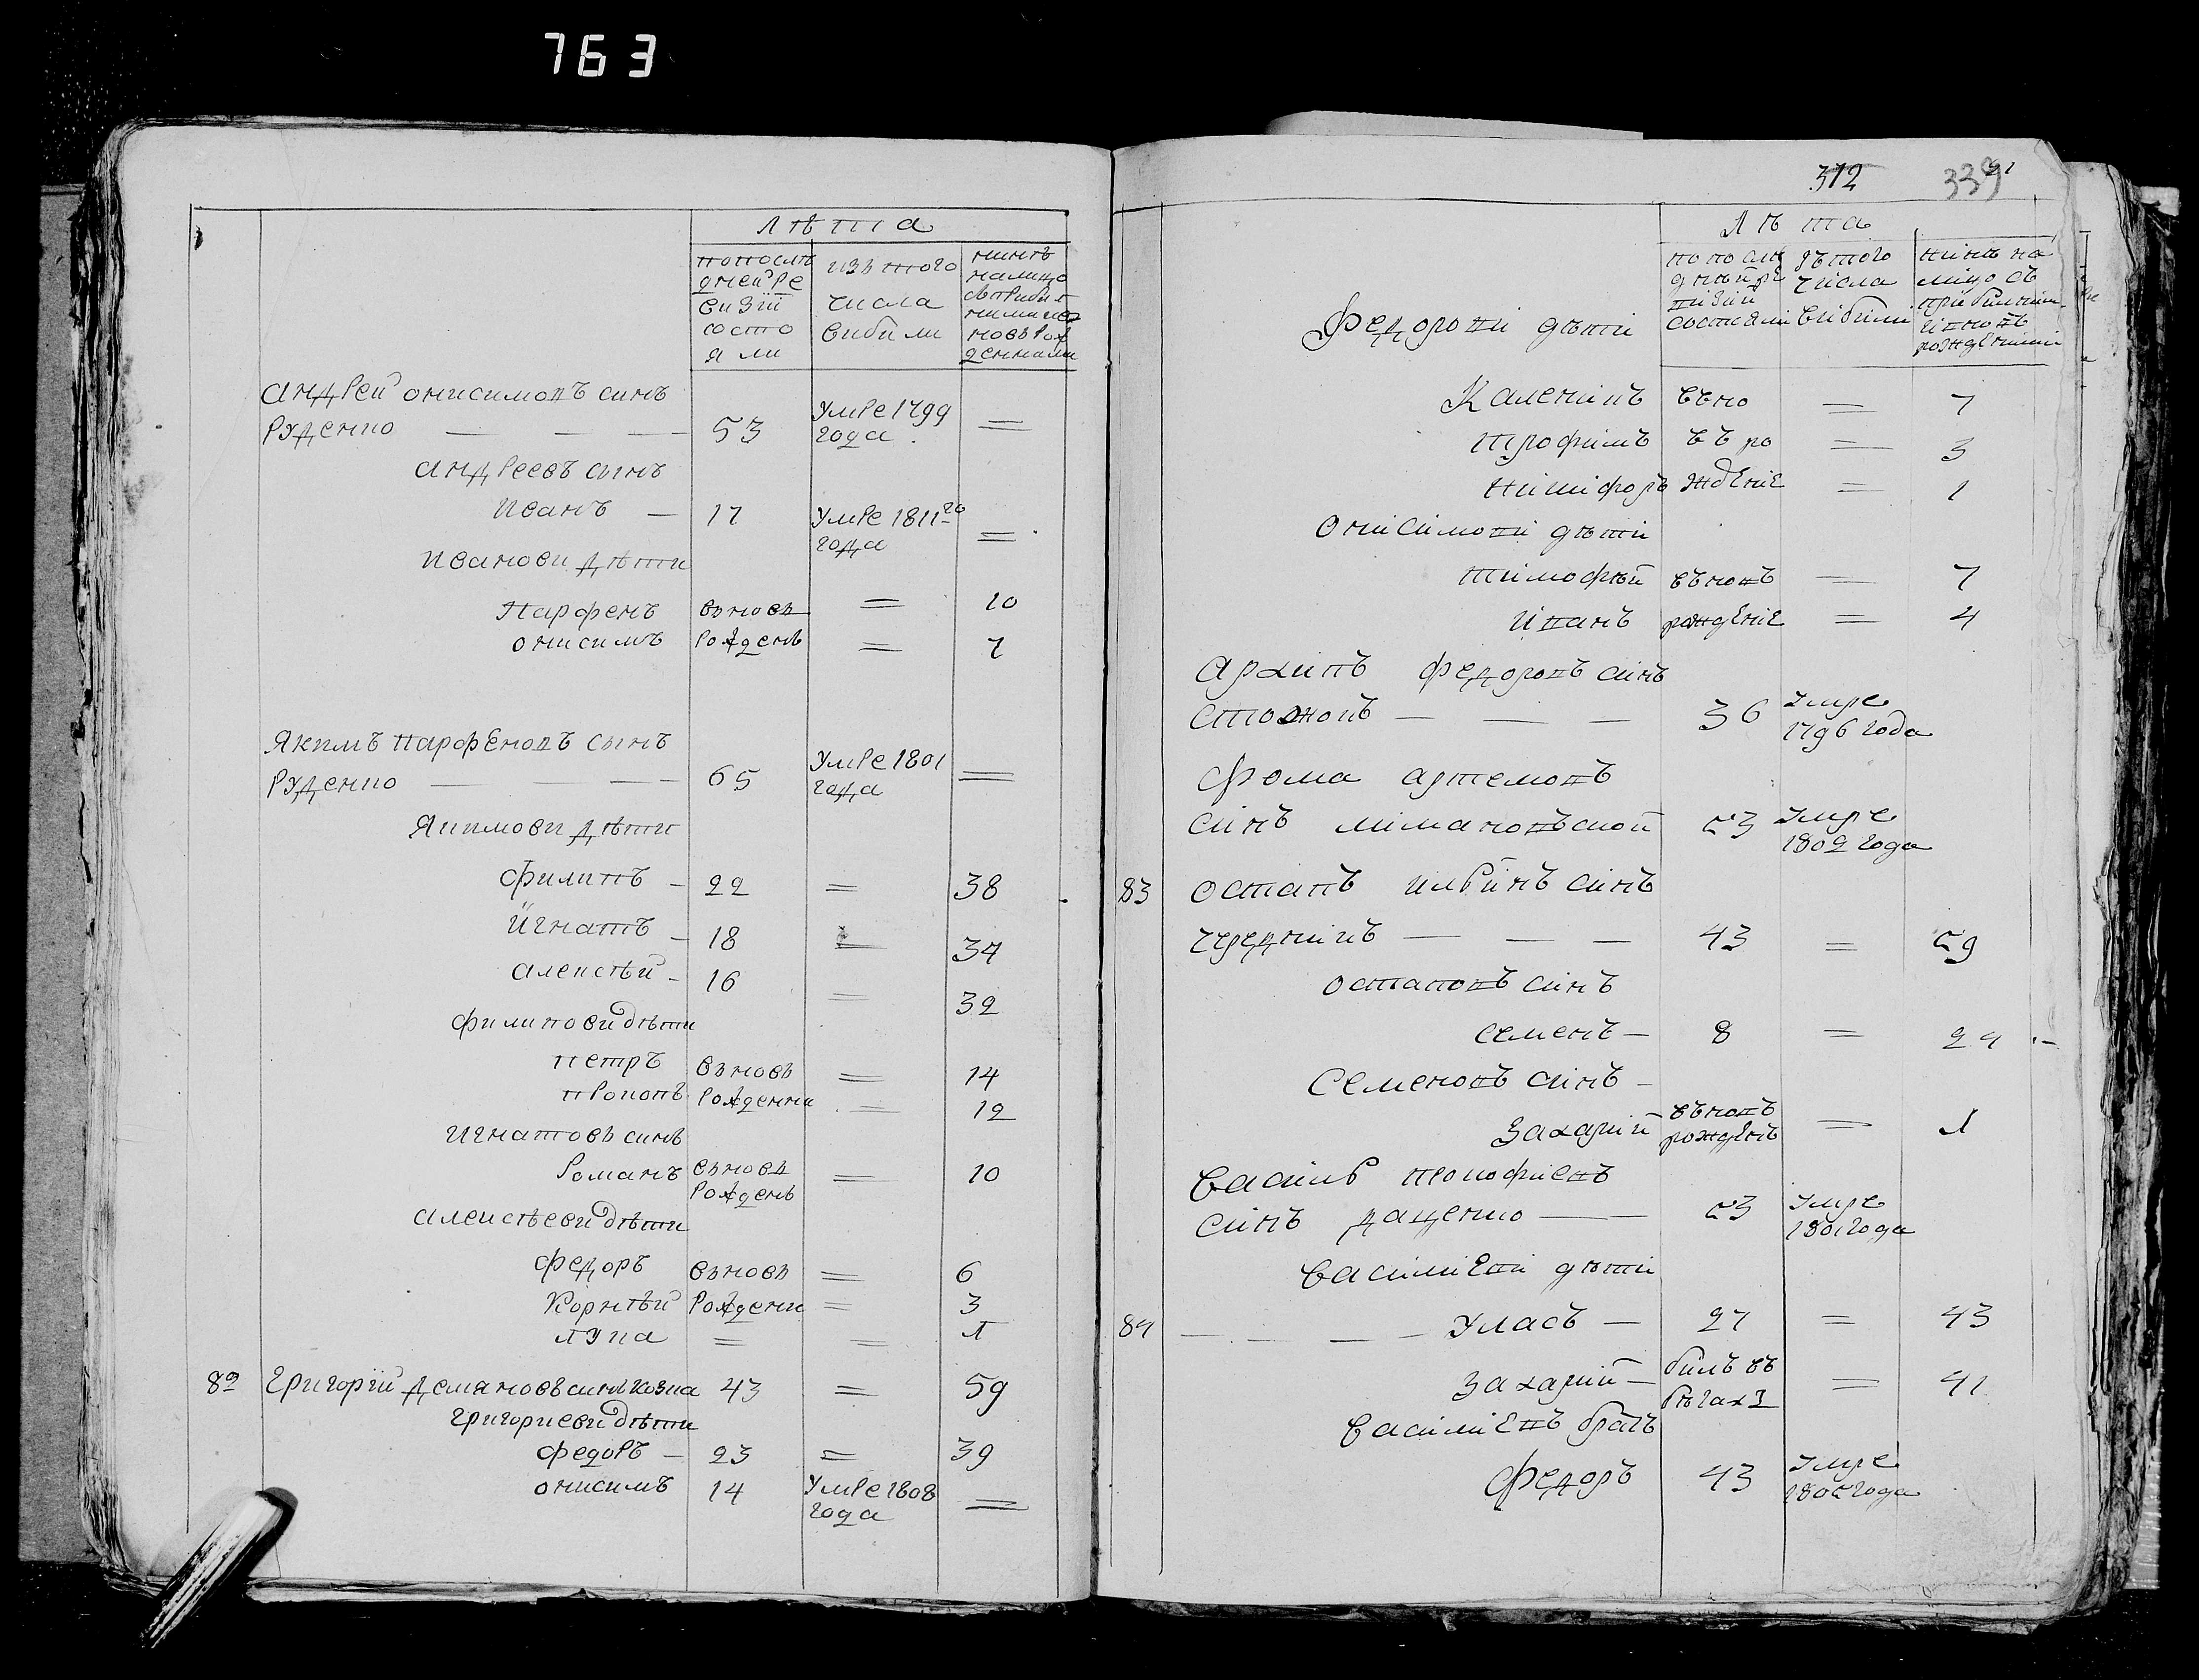 763
Лѣта
попослѣ
дней ре
визїи
состо
я ли
изъ того
числа
вибили
нинѣ
налицо
съприбил
ними ис
новърож
денними
Андрей онисимовъ синъ
Руденко — — — 53 Умре 1799 =
года
андреевъ сынъ
Иванъ — 17 Умре 1811го =
года
Иванови дѣти
Парфенъ вновъ = 10
онисимъ рожденъ = 7
Якимъ парфеновъ сынъ
Руденко — — — 65 Умре 1801 =
года
Якимови дѣти
Филипъ — 22 = 38
Игнатъ — 18 = 34
алексѣй — 16 = 32
филипови дѣти
петръ вновъ = 14
прокопъ рожденни = 12
игнатовъ синъ
романъ вновъ = 10
рожденъ
алексѣеви дѣти
федоръ вновъ = 6
Корнѣй рожденни = 3
лука = = 1
82 Григорїй демяновъ синъ козка 43 = 59
григориеви дѣти
федоръ — 23 = 39
онисимъ 14 Умре 1808 =
года
312 339
Лѣта
по послѣ
днѣй ре
визїи
состояли
зъ того
числа
вибили
нинѣ на
лицо съ
прибилими
и вновъ
рожденими
Федорови дѣти
Каленикъ вьно = 7
трофимъ въ ро = 3
никифоръ ждение = 1
онисимови дѣти
тимофѣй вьновъ = 7
иванъ рождение = 4
архипъ федоровъ синъ
стожокъ — — — 36 Умре
1796 года
Фома артемовъ
синъ лимановъской 53 Умре
1802 года
83 остапъ ильинъ синъ
чередникъ — — — 43 = 59
остаповъ синъ
семенъ — 8 = 24
Семеновъ синъ —
Захарий вьновъ = 1
рожденъ
Василь прокофиевъ
синъ даценко — 53 Умре
1801 года
Василиеви дѣти
84 — — — — Уласъ — 27 = 43
Захарий — билъ въ = 41
бѣгахъ
Василиевъ братъ
Федоръ 43 Умре
1805 года